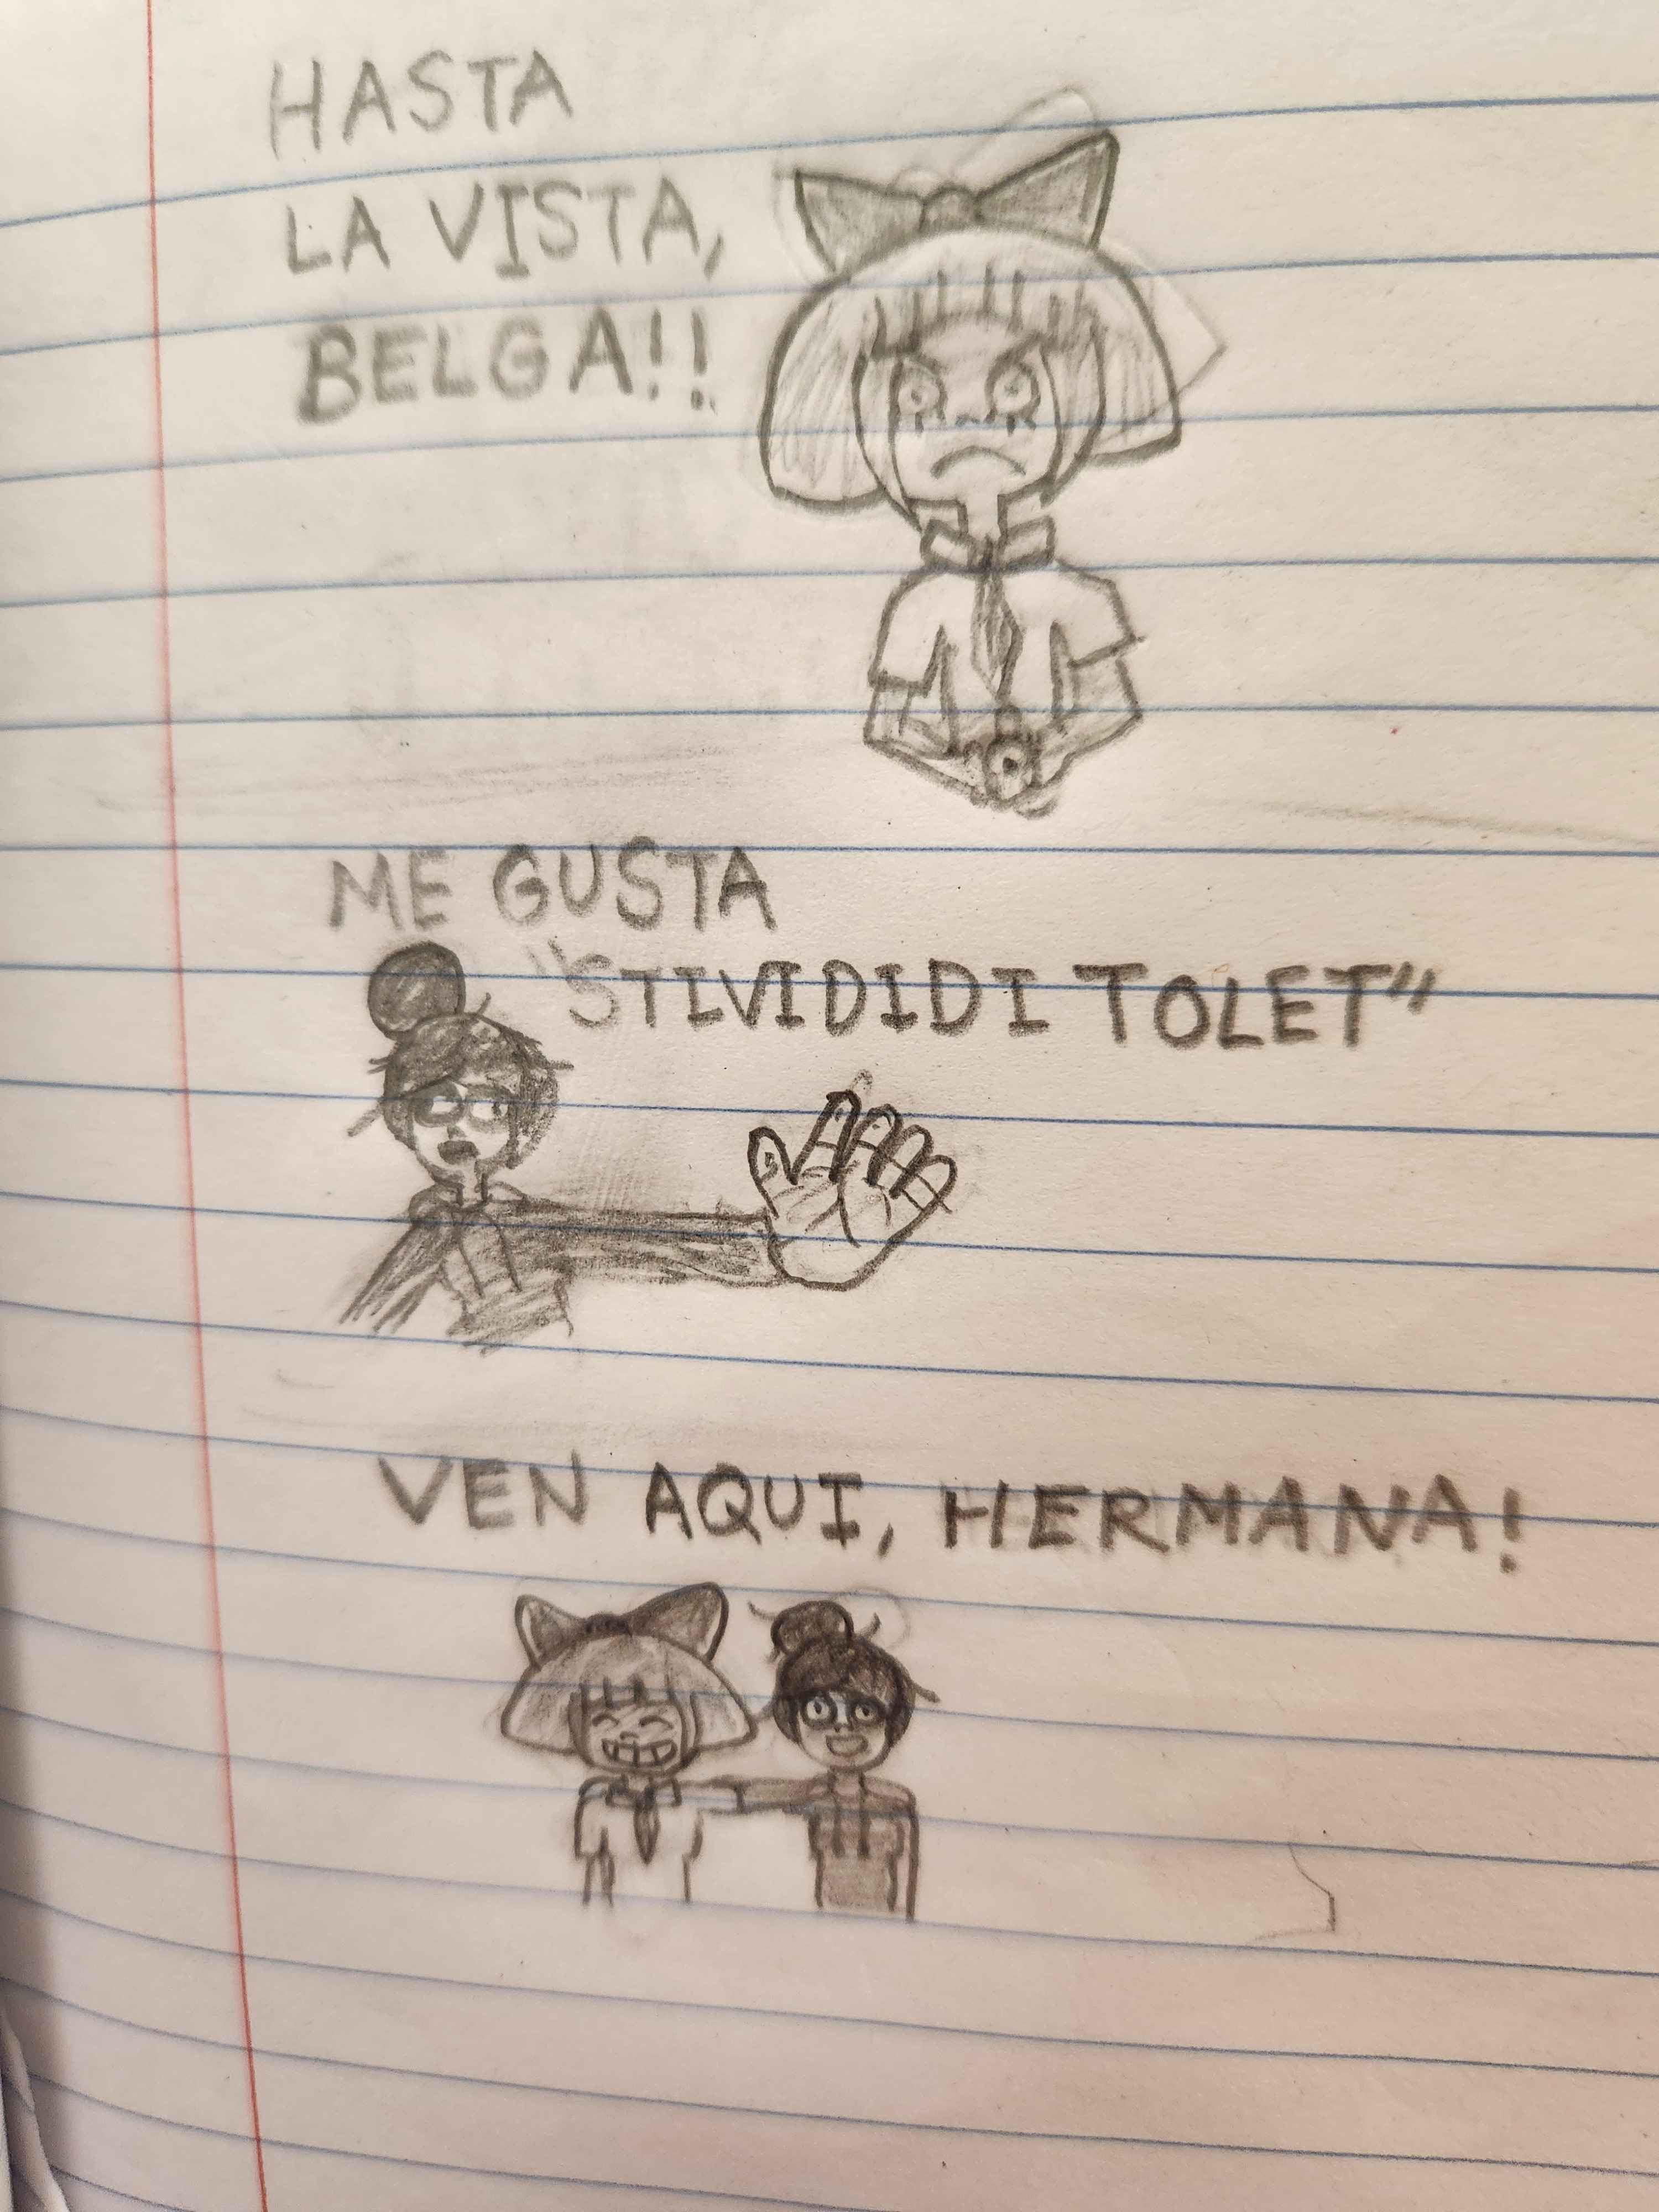 HASTA
LA VISTA,
BELGA!!
ME GUSTA
"STIVIDIDI TOLET"
VEN AQUI, HERMANA!